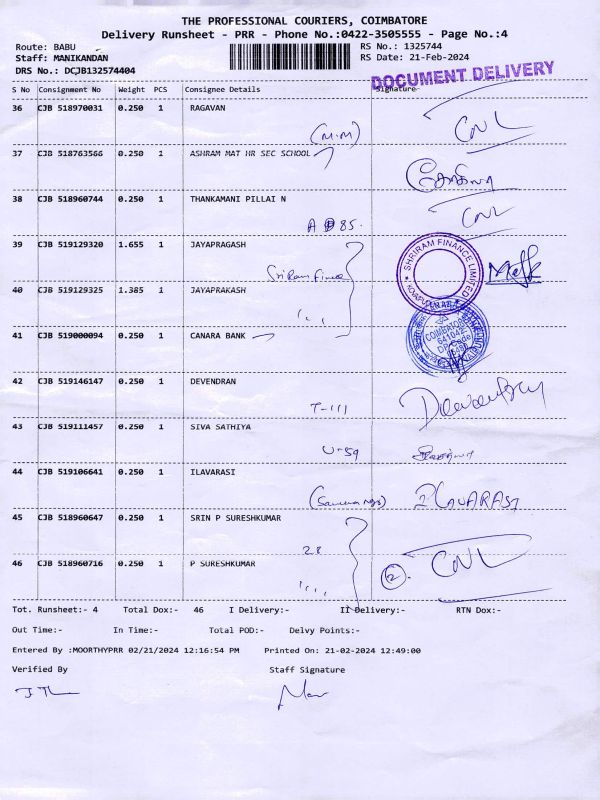 THE PROFESSIONAL COURIERS, COIMBATORE
Delivery Runsheet - PRR - Phone No.:0422-3505555 - Page No.:4
Route: BABU
RS No.: 1325744
Staff: MANIKANDAN
RS Date: 21-Feb-2024
DRS No.: DCJB132574404
DOCUMENT DELIVERY
S No Consignment No Weight PCS Consignee Details Signature
36 CJB 518970031 0.250 1 RAGAVAN
(M.M) CNL
37 CJB 518763566 0.250 1 ASHRAM MAT HR SEC SCHOOL
38 CJB 518960744 0.250 1 THANKAMANI PILLAI N
85. CNL
39 CJB 519129320 1.655 1 JAYAPRAGASH
SHRIRAM FINANCE LIMITED
40 CJB 519129325 1.385 1 JAYAPRAKASH
COIMBATORE
641042
41 CJB 519000094 0.250 1 CANARA BANK
42 CJB 519146147 0.250 1 DEVENDRAN
T-111
43 CJB 519111457 0.250 1 SIVA SATHIYA
U-59
44 CJB 519106641 0.250 1 ILAVARASI
45 CJB 518960647 0.250 1 SRIN P SURESHKUMAR
28
46 CJB 518960716 0.250 1 P SURESHKUMAR
2. CNL
Tot. Runsheet:- 4 Total Dox:- 46 I Delivery:- II Delivery:- RTN Dox:-
Out Time:- In Time:- Total POD:- Delvy Points:-
Entered By :MOORTHYPRR 02/21/2024 12:16:54 PM Printed On: 21-02-2024 12:49:00
Verified By Staff Signature